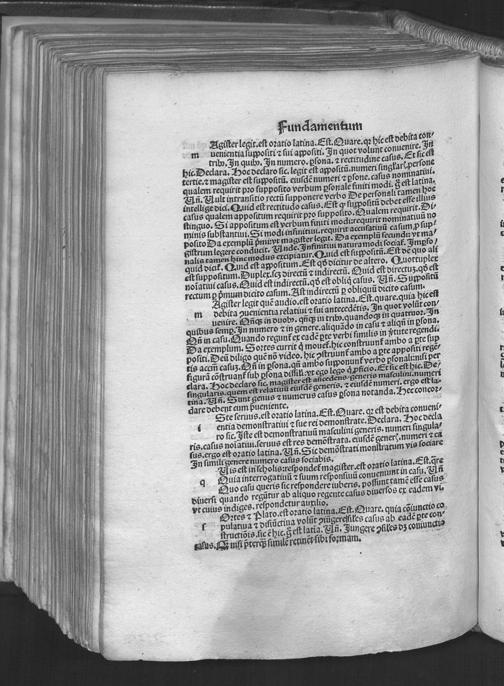 Fundamentum
Agister legit. est oratio latina. Est. Quare. qꝛ hic est debita con⸗
m uenientia suppositi ⁊ sui appositi. In quot volunt conuenire. In
tribꝰ. In quibꝰ. In numero. psona. ⁊ rectitudine casus. Et sic est
hic. Declara. Hoc declaro sic. legit est appositū. numeri singlarꝭ. psone
tertie. ⁊ magister est suppositū. eiusdē numeri ⁊ psone. casus nominatiui.
qualem requirit pro supposito verbum psonale finiti modi. est latina.
Uñ. Uult intransitio recti supponere verbo De personali tamen hoc
intellige dici. Quid est rectitudo casus. Est suppositū debet esse illius
casus qualem appositum requirit pro supposito. Qualem requirit. Di⸗
stinguo. Si appositum est verbum finiti modi: requirit nominatiuū no
minis substantiui. Si modi infinitiui. requirit accusatiuū casum. p sup⸗
posito Da exemplū pmi vt magister legit. Da exemplū secundi vt ma⸗
gistrum legere conducit. Unde. Infinitiui natura modi sociat. In pso⸗
nalis tamen hinc modus excipiatur. Quid est suppositū. Est de quo ali
quid dicit. Quid est appositum. Est qd dicitur de altero. Quotuplex
est suppositum. Duplex. scꝫ directū ⁊ indirectū. Quid est directū. qd est
noiatiui casus. Quid est indirectū. qd est obliq casus. Uñ. Suppositū
rectum p pmum dicito casum. Ast indirectū p obliquū dicito casum.
Agister legit que audio. est oratio latina. Est. quare. quia hic est
m debita ꝯuenientia relatiui ⁊ sui antecedētis. In quot volūt con⸗
uenire. Qñqꝫ in duobꝰ. qñqꝫ in tribꝰ. quandoqꝫ in quattuor. In
quibus semp. In numero ⁊ in genere. aliquādo in casu ⁊ aliqñ in psona.
Qñ in casu. Quando regunt ex eadē pte verbi similis in fetute regendi.
Da exemplum. Sortes currit q mouet. hic construunt ambo a pte sup
positi. Deū diligo quē nō video. hic ꝯstruunt ambo a pte appositi regē⸗
tis accm casū. Qñ in psona. qñ ambo supponunt verbo psonali: nisi per
figurā cōstruant sub psona Et sic est hic. De⸗
clara. Hoc declaro sic. magister est añcedens. generis masculini. numeri
singularis. quem est relatiuū eiusdē generis. ⁊ eiusdē numeri. ergo est la⸗
tina. Uñ. Sunt genus ⁊ numerus casus psona notanda. Hec concor⸗
dare debent cum pueniente.
Ste seruus. est oratio latina. Est. Quare. qꝛ est debita conueni⸗
i entia demonstratiui ⁊ sue rei demonstrate. Declara. Hoc decla
ro sic. Iste est demonstratiuū masculini generis. numeri singula⸗
ris. casus noiatiui. seruus est res demōstrata. eiusdē generꝭ. numeri ⁊ ca
sus. ergo est oratio latina. Uñ. Sic demōstrati monstratum vis sociare
In simili genere numero casus sociabis.
Uis est in scholis: respondet magister. est oratio latina. Est. qre
q Quia interrogatiuū ⁊ suum responsiuū conueniunt in casu. Uñ
Quo casu queris sic respondere iuberis. possunt tamē esse casus
diuersi quando regūtur ab aliquo regente casus diuersos ex eadem vi.
vt cuius indiges. respondetur auxilio.
Ortes ⁊ Plato. est oratio latina. Est. Quare. quia cōiunctio co
s pulatiua ⁊ disiūctiua volūt ꝯiungere sīles casus ab eadē pte con⸗
structiōis. sic ē hic. est latina. Uñ. Iungere ꝯsiles ds coniunctio
casus. nisi pterqꝫ simile retinet sibi formam.